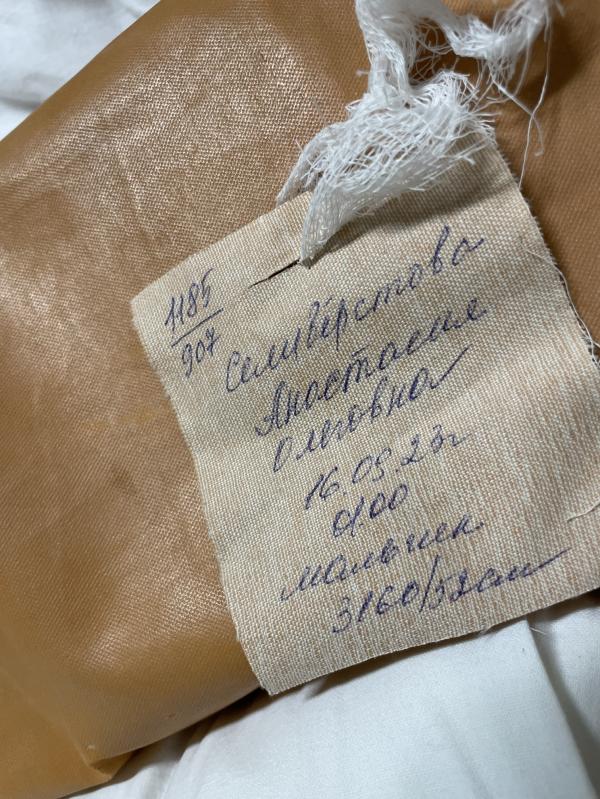 1185
907
Селивёрстова
Анастасия
Олеговна
16.09.23г
01.00
мальчик
3160/52см